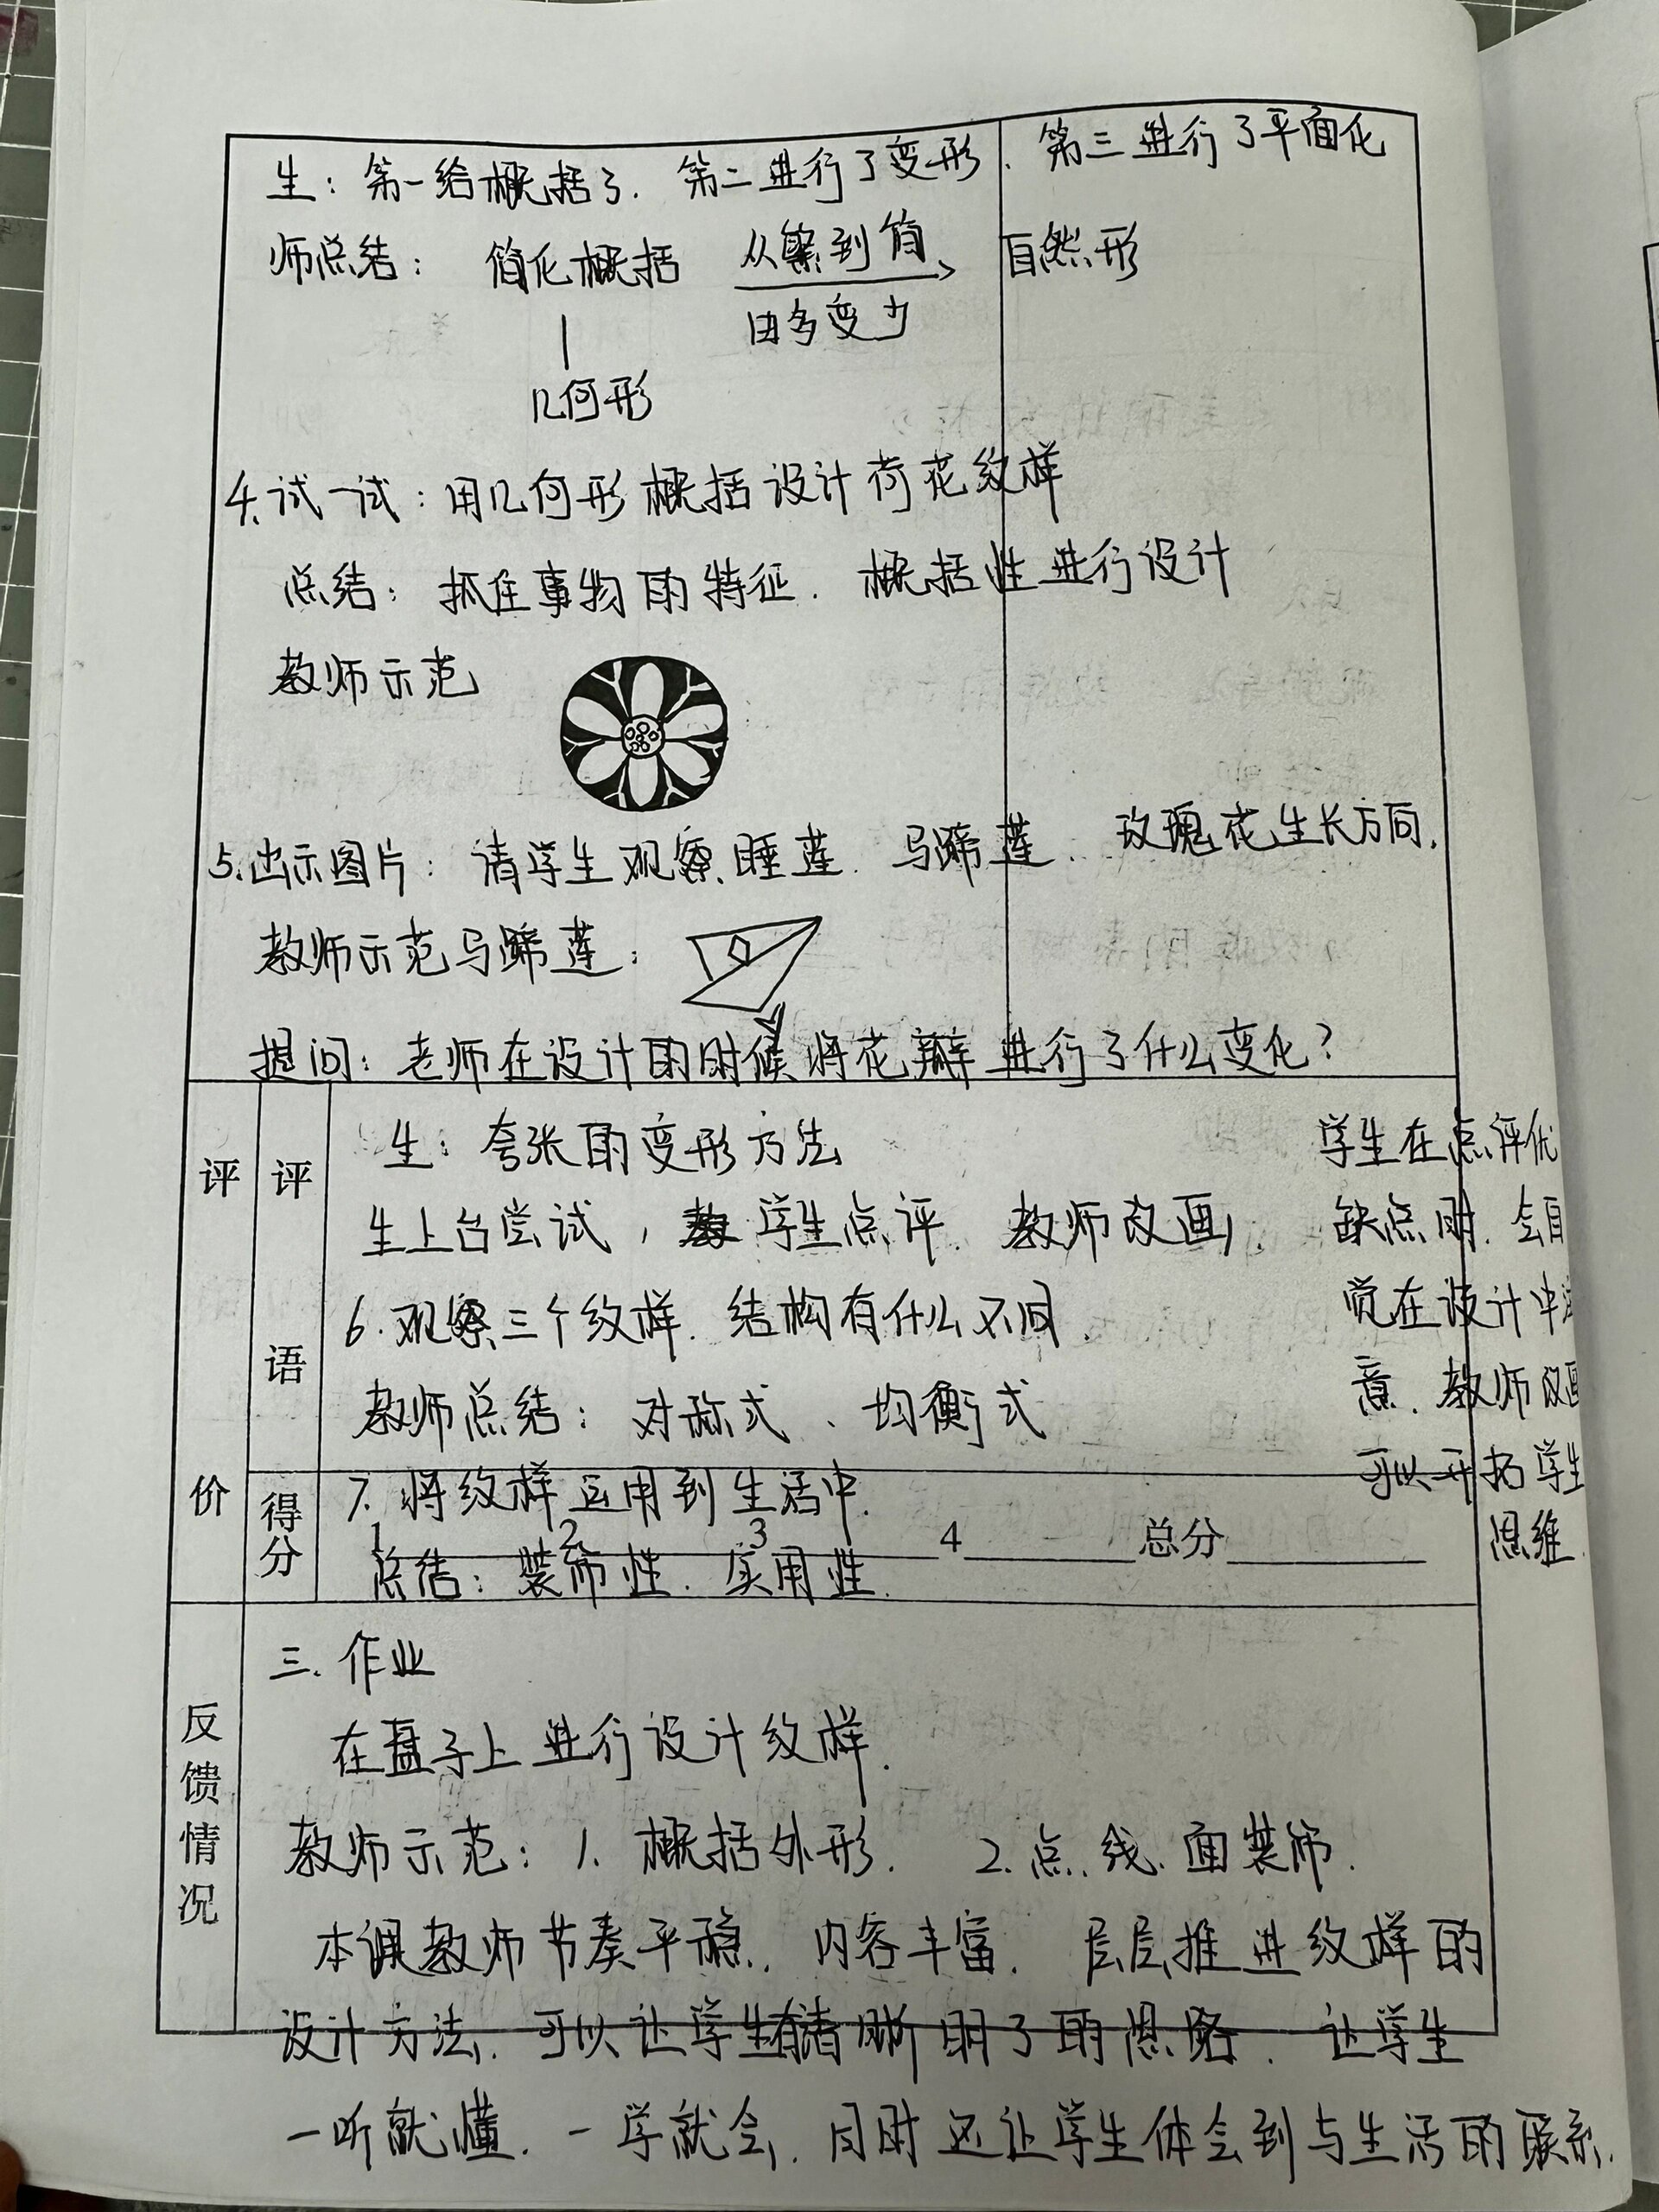 生：第一给概括了．第二进行了变形．第三进行了平面化
师总结：简化概括 从繁到简 自然形
由多变少
几何形
4.试一试：用几何形概括设计荷花纹样
总结：抓住事物的特征．概括性进行设计
教师示范
5.出示图片：请学生观察睡莲．马蹄莲．玫瑰花生长方向．
教师示范马蹄莲：
提问：老师在设计的时候将花瓣进行了什么变化？
评价
评语
生：夸张的变形方法
生上台尝试，学生点评．教师改画．
6.观察三个纹样．结构有什么不同．
教师总结：对称式、均衡式
学生在点评优
缺点时．会自
觉在设计中
意．教师改画
可以开拓学生
思维．
得分
7.将纹样运用到生活中．
1 2 3 4 总分
总结：装饰性．实用性．
反馈情况
三.作业
在盘子上进行设计纹样．
教师示范：1.概括外形． 2.点、线、面装饰．
本课教师节奏平稳．内容丰富．层层推进纹样的
设计方法．可以让学生有清晰明了的思路．让学生
一听就懂．一学就会．同时还让学生体会到与生活的联系．